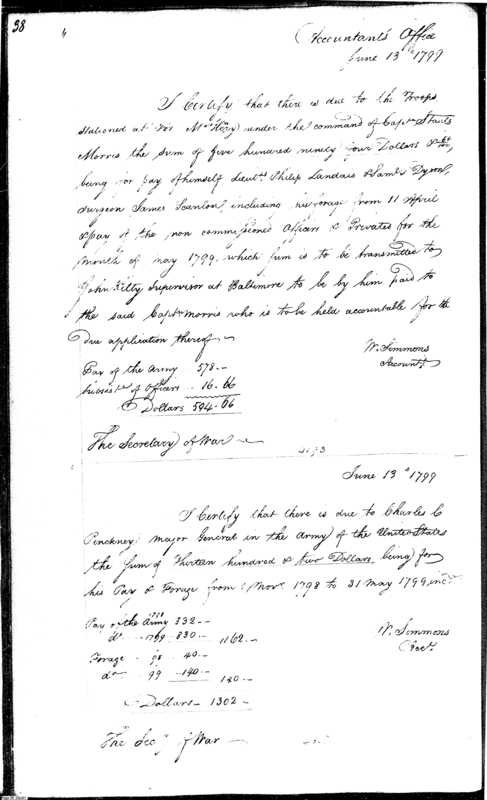 38
Accountant's Office
June 13th 1799
I Certify that there is due to the Troops
stationed at For McHenry under the command of Captn Staats
Morris the sum of five hundred ninety four Dollars & 66/100,
being for pay of himself Lieutts Philip Landais & Saml Dyson,
surgeon James Scanlon, including his forage from 11 April
& pay of the non commissioned Officers & Privates for the
month of may 1799, which sum is to be transmitted to
John Kilty Supervisor at Baltimore to be by him paid to
the said Captn Morris who is to be held accountable for the
due application thereof
W. Simmons
Accountt
Pay of the Army 578.--
subsistce of Officers 16.66
Dollars 594.66
The Secretary of War
June 13th 1799
I Certify that there is due to Charles C
Penckney major General in the Army of the United States
the sum of Thirteen hundred & two Dollars, being for
his Pay & Forage from 1 Novr 1798 to 31 May 1799, incve
Pay of the Army 1798 332.--
do 1799 830.-- 1162.--
Forage 98 40.--
do 99 140.-- 180.--
Dollars 1302.--
W. Simmons
Acct.
The Secy of War